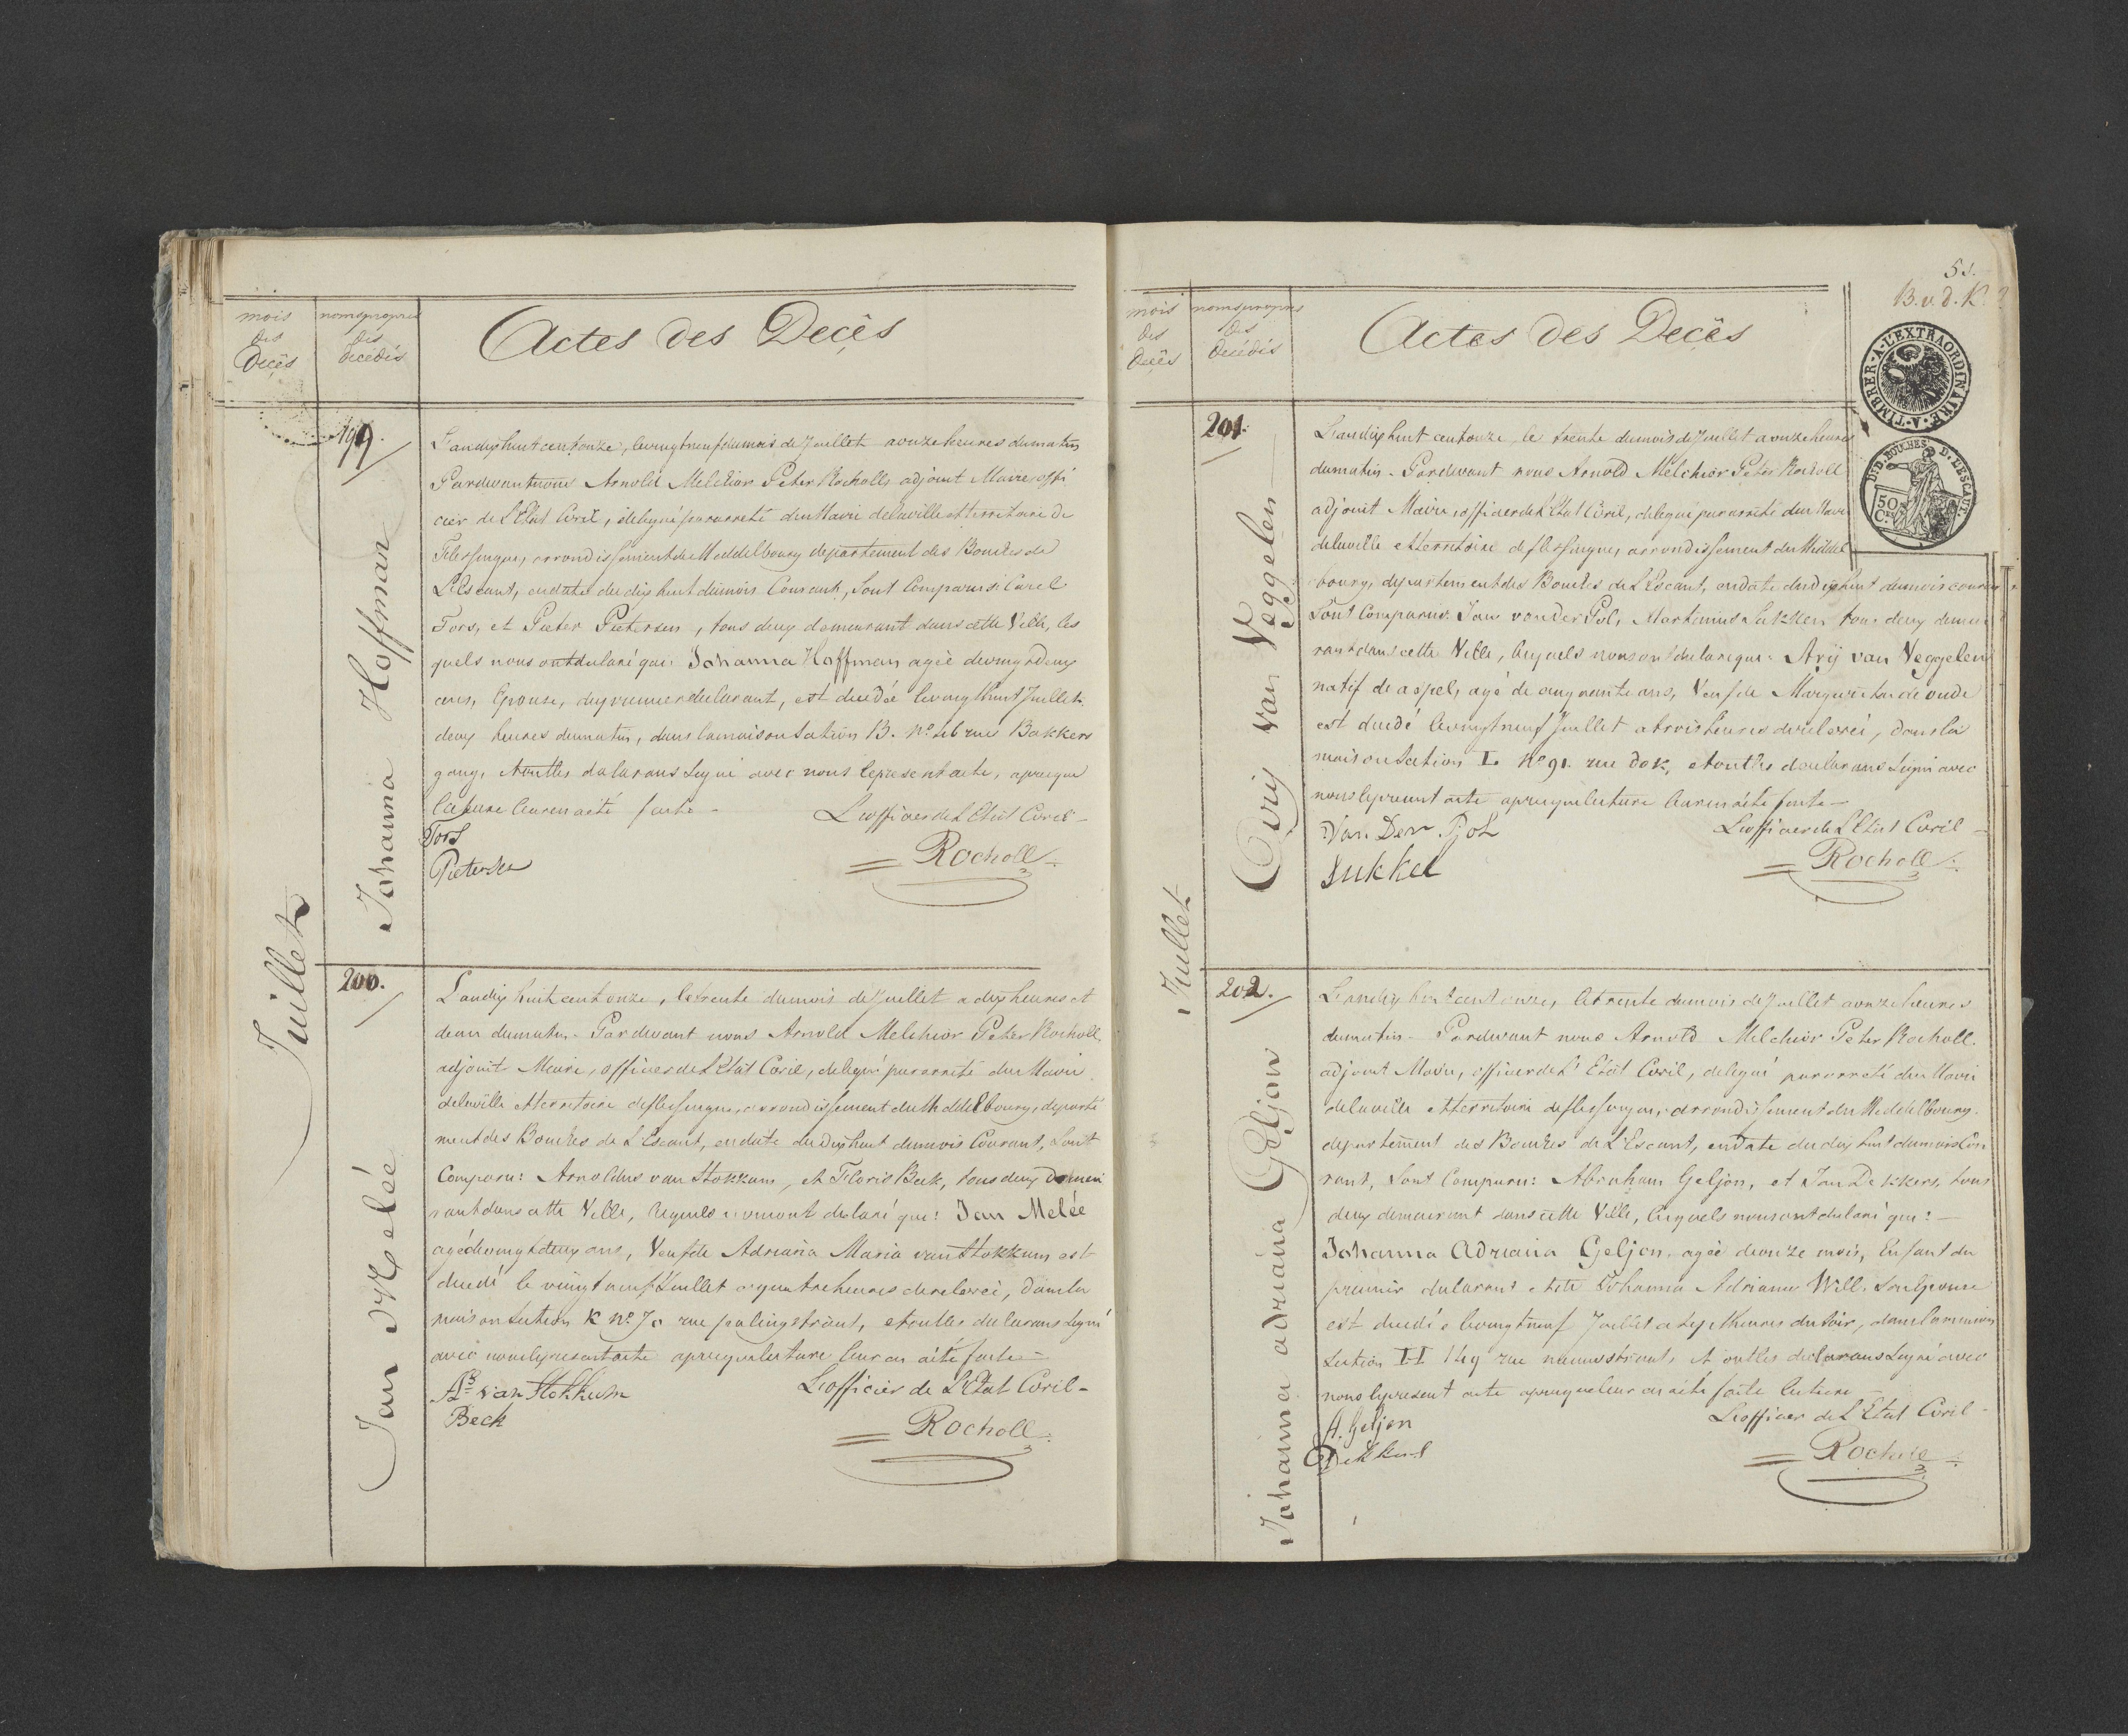 mois
des
Decès
noms propres
des
decédés
Actes des Decès
Juillet
199.
Johanna Hoffman
L'an dix huit cent onze, le vingt neuf du mois de Juillet a onze heures du matin
Pardevant nous Arnold Melchior Peter Rocholl adjoint Maire, offi
cier de L'Etat Civil, delegué par arreté du Maire de la ville et territoire de
Flessingue, arrondissement de Meddelbourg departement des Bouches de
L'Escaut, en date du dix huit du mois Courant, Sont Comparus: Carel
Tors, et Pieter Pietersen, tous deux demeurant dans cette Ville, les
quels nous ont declaré que: Johanna Hoffman agée de vingt deux
ans, Epouse, du premier declarant, est decedée le vingt huit Juillet
deux heures du matin, dans la maison Section B. No. 46 rue Bakkers
gang, et ont les declarans Signé avec nous le present acte, apres que
lecture leur en a été faite -
L'officier de L'Etat Civil -
Tors
Pieterse
Rocholl
200.
Jan Melée
L'an dix huit cent onze, le trente du mois de Juillet a dix heures et
demi du matin - Pardevant nous Arnold Melchior Peter Rocholl,
adjoint Maire, officier de L'Etat Civil, delegué par arreté du Maire
de la ville et territoire de flessingue, arrondissement du Meddelbourg, departe
ment des Bouches de L'Escaut, en date du dix huit du mois Courant, Sont
Comparu: Arnoldus van Stokkum, et Floris Beck, tous deux demeu
rant dans cette Ville, lesquels nous ont declaré que: Jan Melée
agé de vingt deux ans, Veuf de Adriana Maria van Stokkum est
decedé le vingt neuf Juillet a quatre heures de relevée, dans la
maison Section K No. 70 rue palingstraat, et ont les declarans Signé
avec nous le present acte apres que lecture leur en a été faite -
L'officier de L'Etat Civil -
As. van Stokkum
Beck
Rocholl
51.
B. v. d. K.
A TIMBRER A L'EXTRAORDINAIRE
DP. D. BOUCHES D. L'ESCAUT.
50
C.
mois
des
Decès
noms propres
des
Decédés
Actes des Decès
Juillet
201.
Arij van Veggelen
L'an dix huit cent onze, le trente du mois de Juillet a onze heures
du matin - Pardevant nous Arnold Melchior Peter Rocholl
adjoint Maire, officier de L'Etat Civil, delegué par arreté du Maire
de la ville et territoire de flessingue, arrondissement du Meddel
bourg, departement des Bouches de L'Escaut, en date du dix huit du mois courant
Sont Comparus: Jan van der Pol, Martinus Sukkel tous deux demeu
rant dans cette Ville, lesquels nous ont declaré que: Arij van Veggelen
natif de aspel, agé de cinquante ans, Veuf de Marguerite de oude
est decedé le vingt neuf Juillet a trois heures de relevée, dans la
maison Section I. No 91. rue dok, et ont les declarans Signé avec
nous le present acte apres que lecture leur en a été faite -
L'officier de L'Etat Civil -
Van Der Pol
Sukkel
Rocholl
202.
Johanna adriana Geljon
L'an dix huit cent onze, le trente du mois de Juillet a onze heures
du matin - Pardevant nous Arnold Melchior Peter Rocholl.
adjoint Maire, officier de L'Etat Civil, delegué par arreté du Maire
de la ville et territoire de flessingue, arrondissement du Meddelbourg.
departement des Bouches de L'Escaut, en date du dix huit du mois Cou
rant, Sont Comparu: Abraham Geljon, et Jan Dekkers, tous
deux demeurant dans cette Ville, lesquels nous ont declaré que: -
Johanna Adriana Geljon. agée de onze mois, Enfant du
premier declarant et de Johanna Adriana Will. Son Epouse
est decedée le vingt neuf Juillet a Sept heures du Soir, dans la maison
Section H 149 rue nieuwstraat, et ont les declarans Signé avec
nous le present acte apres que leur en a été faite lecture
L'officier de L'Etat Civil -
A. Geljon
Dekkers
Rocholl